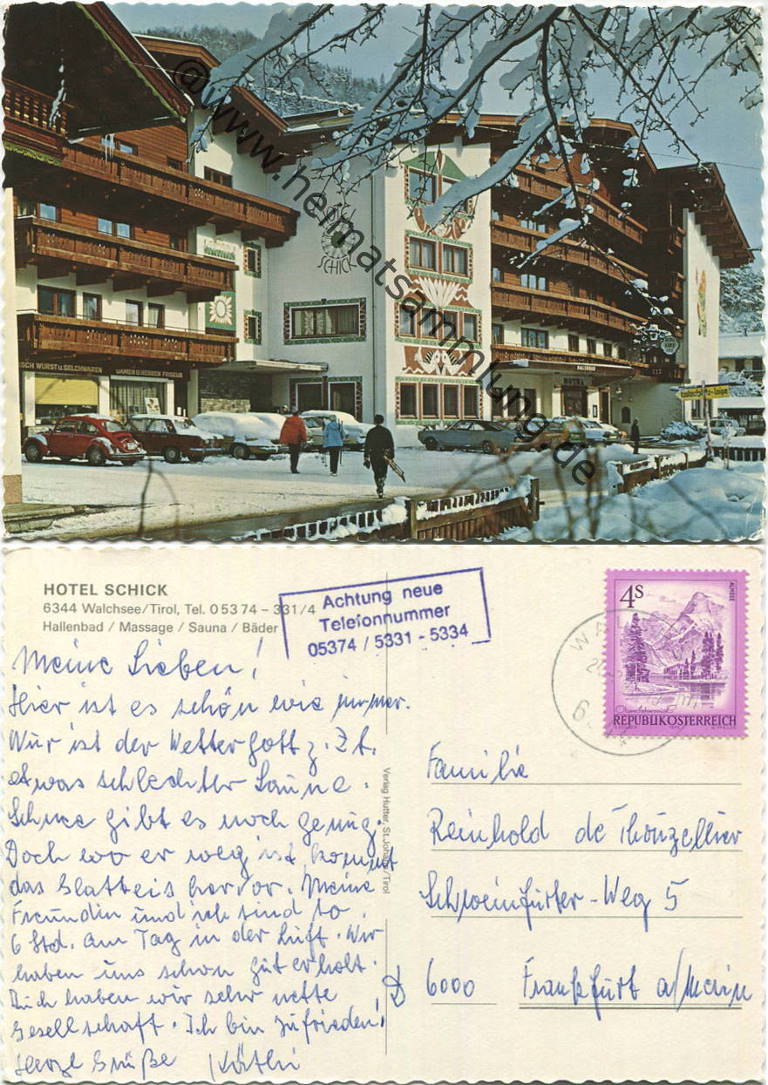 @www.heimatsammlung.de
SCHICK
SCH WURST u. SELCHWAREN
DAMEN u. HERREN FRISEUR
HALLENBAD
HOTEL
HOTEL SCHICK
6344 Walchsee/Tirol, Tel. 0 53 74 – 331/4
Hallenbad / Massage / Sauna / Bäder
Achtung neue
Telefonnummer
05374 / 5331 - 5334
Meine Lieben!
Hier ist es schön wie immer.
Nur ist der Wettergott z. Zt.
etwas schlechter Laune.
Schnee gibt es noch genug.
Doch wo er weg ist, kommt
das Glatteis hervor. Meine
Freundin und ich sind so
6 Std. am Tag in der Luft. Wir
haben uns schon gut erholt.
Auch haben wir sehr nette
Gesellschaft. Ich bin zufrieden!
Herzl Grüße Käthi
Verlag Hutter, St. Johann/Tirol
4S
ALMSEE
REPUBLIK ÖSTERREICH
Familie
Reinhold de Thouzellier
Schweinfurter-Weg 5
D 6000 Frankfurt a/Main